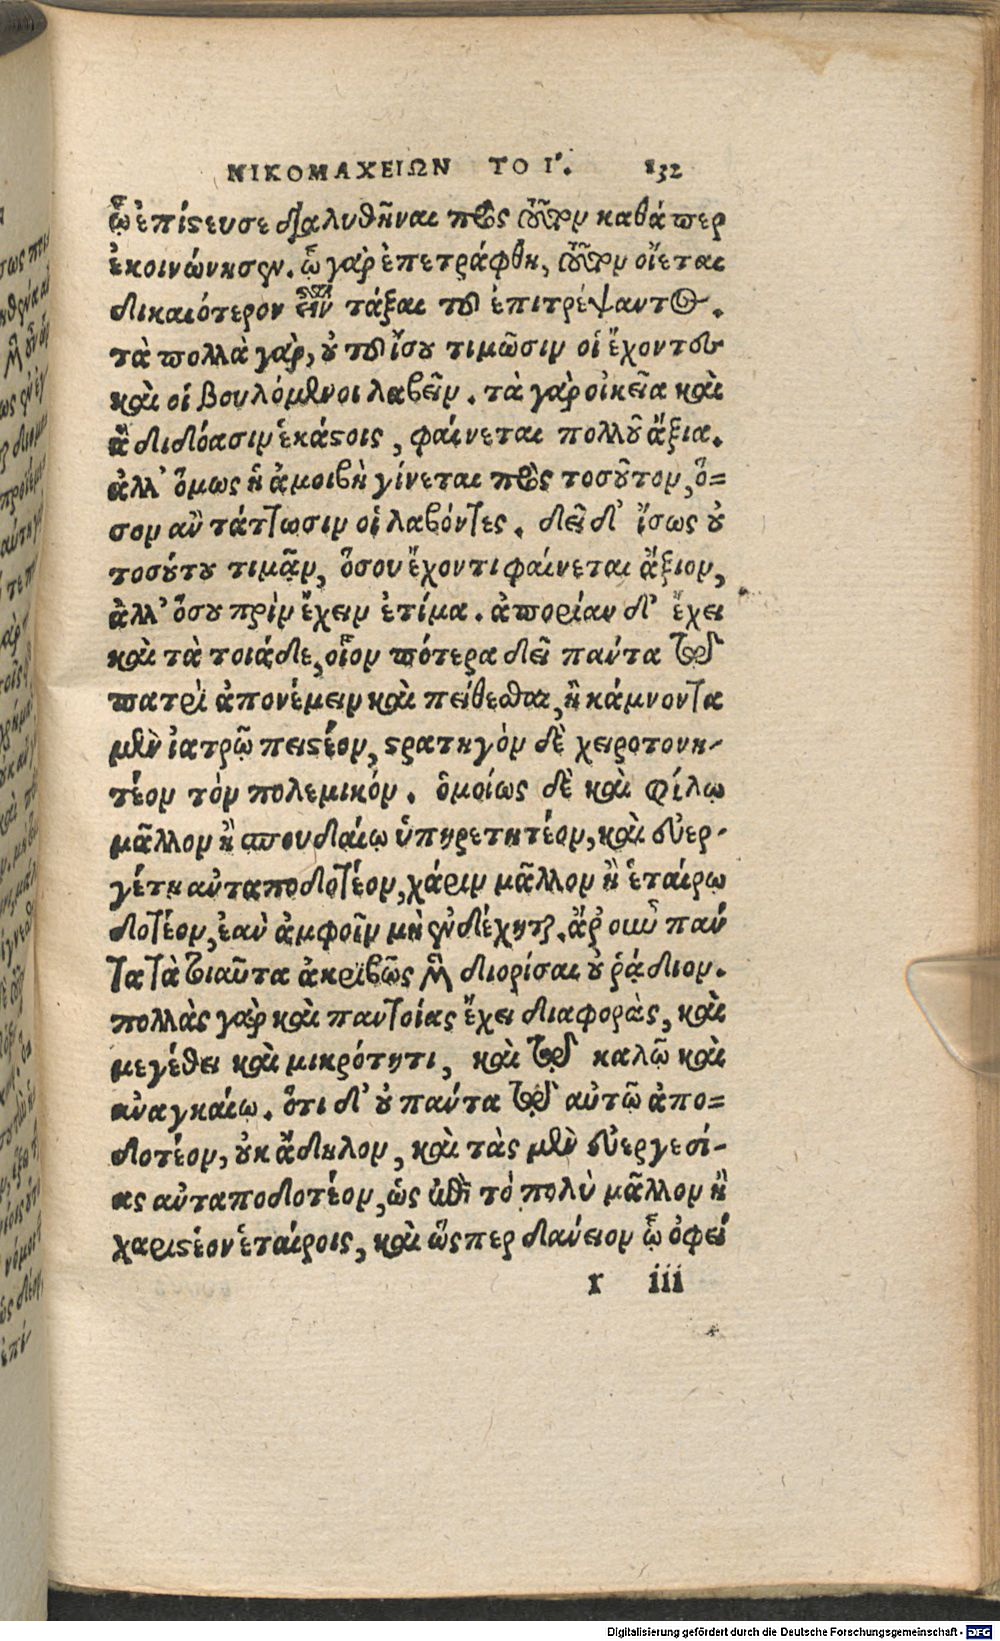 ΝΙΚΟΜΑΧΕΙΩΝ ΤΟ Ι'. 132
ᾧ ἐπίϛευσε διαλυθῆναι πρὸς τοῦτον καθάπερ
ἐκοινώνησεν. ᾧ γὰρ ἐπετράφθη, τοῦτον οἴεται
δικαιότερον εἶναι τάξαι τοῦ ἐπιτρέψαντος.
τὰ πολλὰ γὰρ, οὐ τοῦ ἴσου τιμῶσιν οἱ ἔχοντες
καὶ οἱ βουλόμενοι λαβεῖν. τὰ γὰρ οἰκεῖα καὶ
ἃ διδόασιν ἑκάϛοις, φαίνεται πολλοῦ ἄξια.
ἀλλ' ὅμως ἡ ἀμοιβὴ γίνεται πρὸς τοσοῦτον, ὅ=
σον ἂν τάττωσιν οἱ λαβόντες. δεῖ δ' ἴσως οὐ
τοσούτου τιμᾷν, ὅσου ἔχοντι φαίνεται ἄξιον,
ἀλλ' ὅσου πρὶν ἔχειν ἐτίμα. ἀπορίαν δ' ἔχει
καὶ τὰ τοιάδε, οἷον πότερα δεῖ πάντα τῷ
πατρὶ ἀπονέμειν καὶ πείθεσθαι, ἢ κάμνοντα
μὲν ἰατρῷ πειϛέον, ϛρατηγὸν δὲ χειροτονη-
τέον τὸν πολεμικόν. ὁμοίως δὲ καὶ φίλῳ
μᾶλλον ἢ σπουδαίῳ ὑπηρετητέον, καὶ εὐερ-
γέτῃ αὐταποδοτέον, χάριν μᾶλλον ἢ ἑταίρῳ
δοτέον, ἐὰν ἀμφοῖν μὴ ἐνδέχηται. ἆρ' οὖν πάν
τα τὰ τοιαῦτα ἀκριβῶς μὲν διορίσαι οὐ ῥᾴδιον.
πολλὰς γὰρ καὶ παντοίας ἔχει διαφορὰς, καὶ
μεγέθει καὶ μικρότητι, καὶ τῷ καλῷ καὶ
ἀναγκαίῳ. ὅτι δ' οὐ πάντα τῷ αὐτῷ ἀπο=
δοτέον, οὐκ ἄδηλον, καὶ τὰς μὲν εὐεργεσί-
ας αὐταποδοτέον, ὡς ἐπὶ τὸ πολὺ μᾶλλον ἢ
χαριϛέον ἑταίροις, καὶ ὥσπερ δάνειον ᾧ ὀφεί
r iii
Digitalisierung gefördert durch die Deutsche Forschungsgemeinschaft - DFG